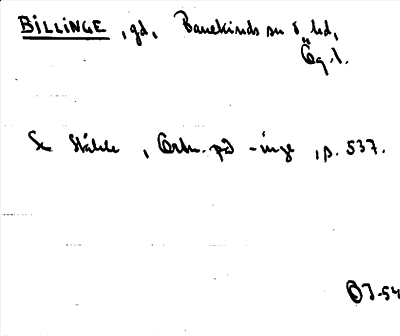 BILLINGE, gd, Banekinds sn o. hd,
Ög. l.
Se Ståhle, Ortn. på -inge, s. 537.
OJ-54